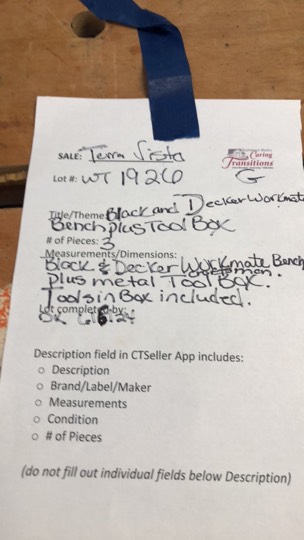 SALE: Terra Vista
Caring Transitions
Lot #: WT 1926 G
Title/Theme: Black and Decker Workmate
Bench plus Tool Box
# of Pieces: 3
Measurements/Dimensions:
Black & Decker Workmate Bench
plus metal Craftsman Tool Box.
Tools in Box included.
Lot completed by:
6.24
Description field in CTSeller App includes:
o Description
o Brand/Label/Maker
o Measurements
o Condition
o # of Pieces
(do not fill out individual fields below Description)